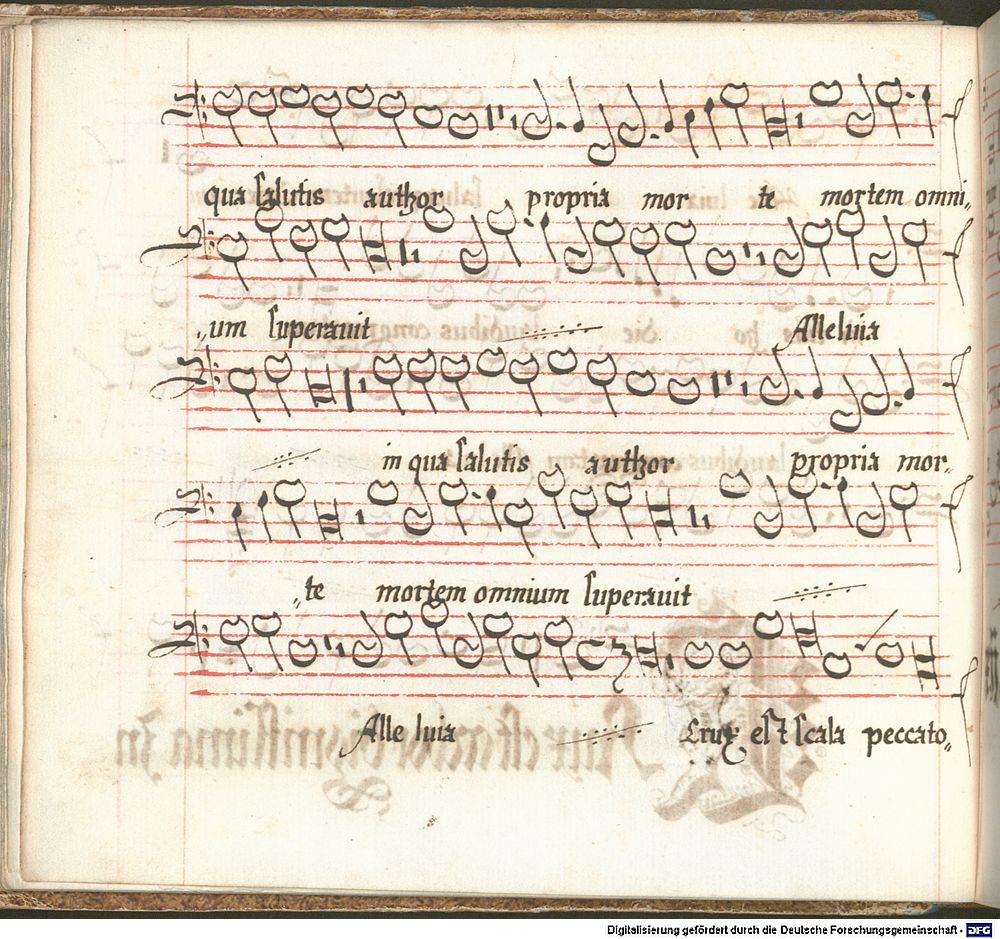 qua salutis author propria mor te mortem omni,
,,um superauit Alleluia
in qua salutis author propria mor,,
,,te mortem omnium superauit
Alle luia Crux est scala peccato,,
Digitalisierung gefördert durch die Deutsche Forschungsgemeinschaft - DFG